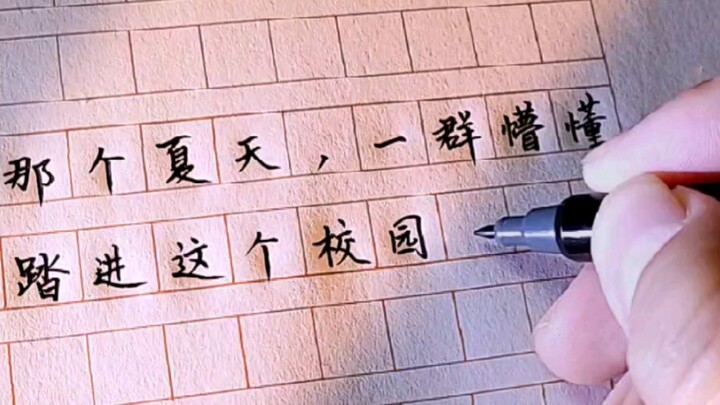 那个夏天，一群懵懂
踏进这个校园